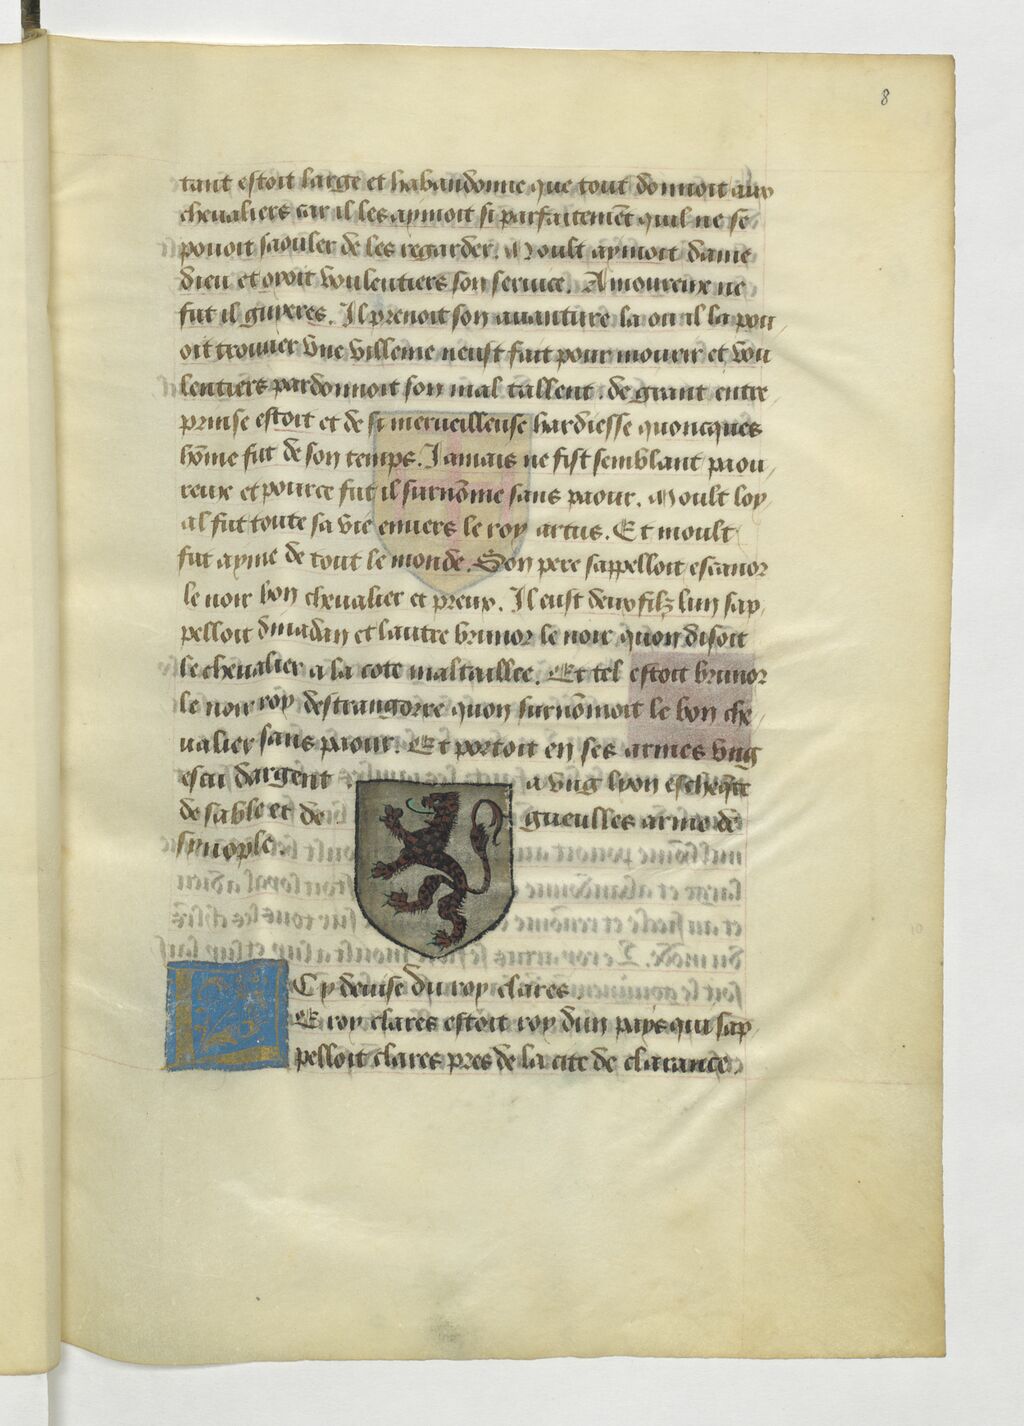 8
tant estoit large et habandonne que tout donnoit aux
chevaliers car il les aymoit si parfaitemẽt quil ne se
pouoit saouler de les regarder. Moult aymoit dame
dieu et oyoit voulentiers son seruice. Amoureux ne
fut il guyeres. Il prenoit son auanture la ou il la pou
oit trouuer vne villenie neust fait pour mourir et vou
lentiers pardonnoit son mal tallent. de grant entre
prinse estoit et de si merueilleuse hardiesse quoncques
hõme fut de son temps. Jamais ne fist semblant paou
reux et pource fut il surnõme sans paour. Moult loy
al fut toute sa vie enuers le roy artus. Et moult
fut ayme de tout le monde. Son pere sappelloit escanor
le noir bon cheualier et preux. Il eust deux filz lun sap
pelloit dinadan et lautre brunor le noir quon disoit
le cheualier a la cote maltaillee. Et tel estoit brunor
le noir roy destrangorre quon surnõmoit le bon che
ualier sans paour. Et portoit en ses armes vng
escu dargent a vng lyon escheq̃te
de sable et de gueulles arme de
synople.
Cy deuise du roy clares
LE roy clares estoit roy dun pays qui sap
pelloit clares pres de la cite de clarance